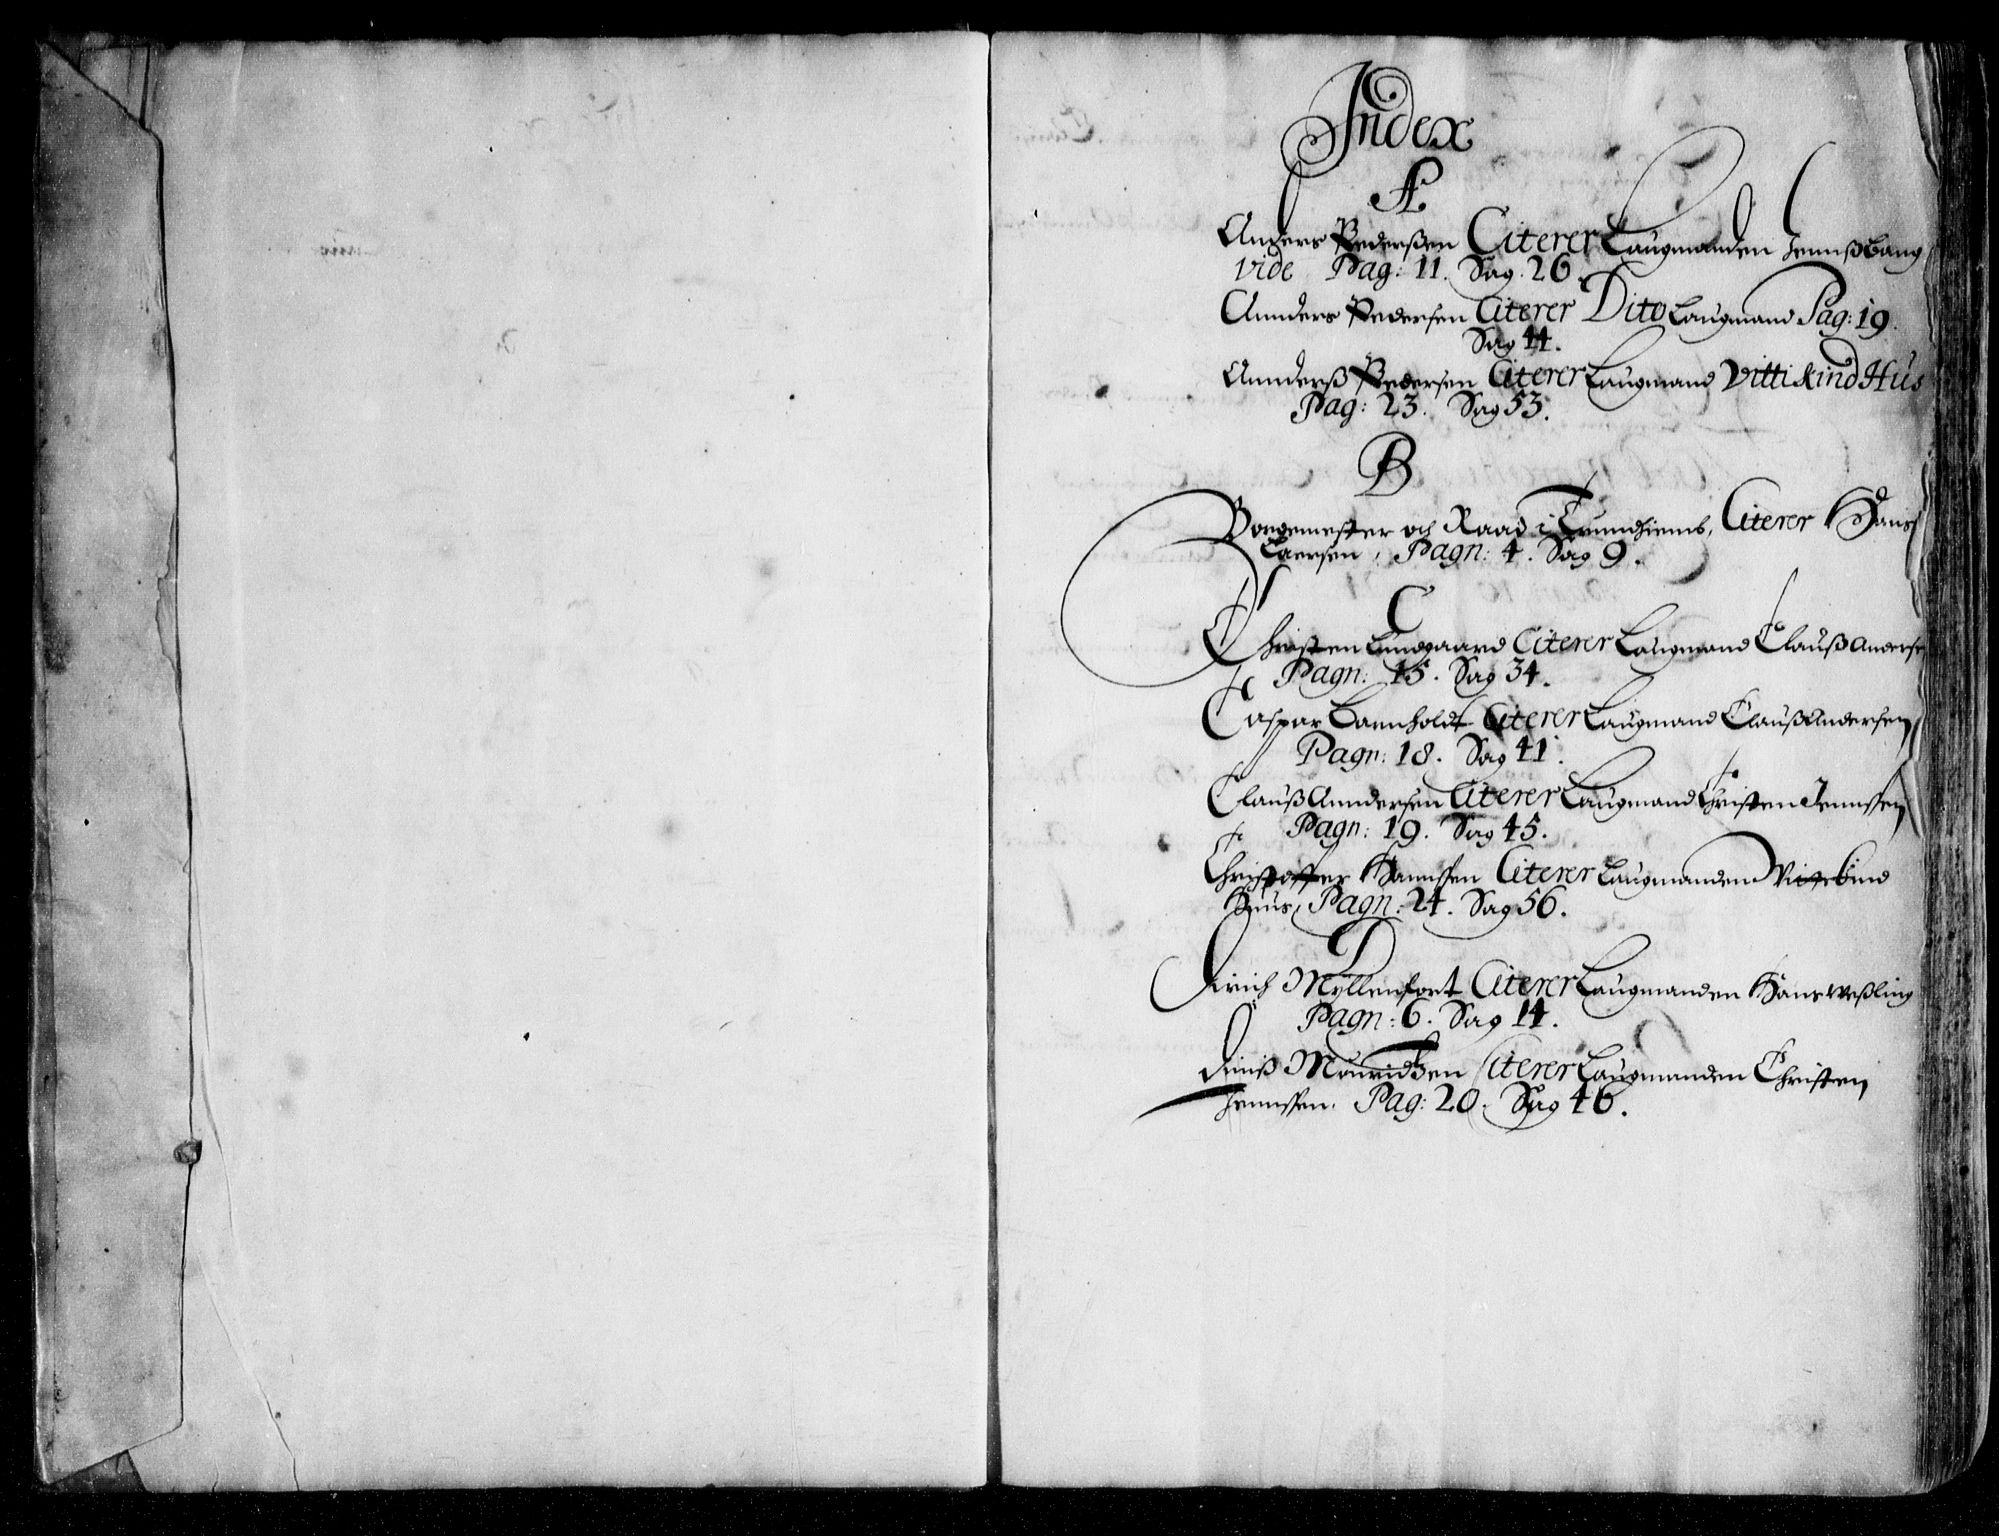 Index
A
Anders Pederßen Citerer Laugmanden Jennß Bang
vide Pag: 11. Sag. 26.
Annders Pedersen Citerer Dito Laugmand Pag: 19.
Sag 44.
Annderß Pedersen Citerer Laugmand Vittikind Hus
Pag: 23. Sag 53.
B
Borgemester och Raad i Trundhiemb, Citerer Hans
Laersen, Pagn: 4. Sag 9.
C
Christen Lundgaard Citerer Laugmand Clauß Anderse
Pagn: 15. Sag 34.
Caspar Citerer Laugmand Clauß Andersen
Pagn: 18. Sag 41.
Clauß Anndersen Citerer Laugmand Christen Jennssen
Pagn: 19. Sag 45.
Christoffer Hannssen Citerer Laugmanden Vittekind
Huus, Pagn: 24. Sag 56.
D
Dirich Myllenfort Citerer Laugmanden Hans Weßling
Pagn: 6. Sag 14.
Diniß Mouridtzen Citerer Laugmanden Christen
Jennssen. Pag: 20. Sag 46.